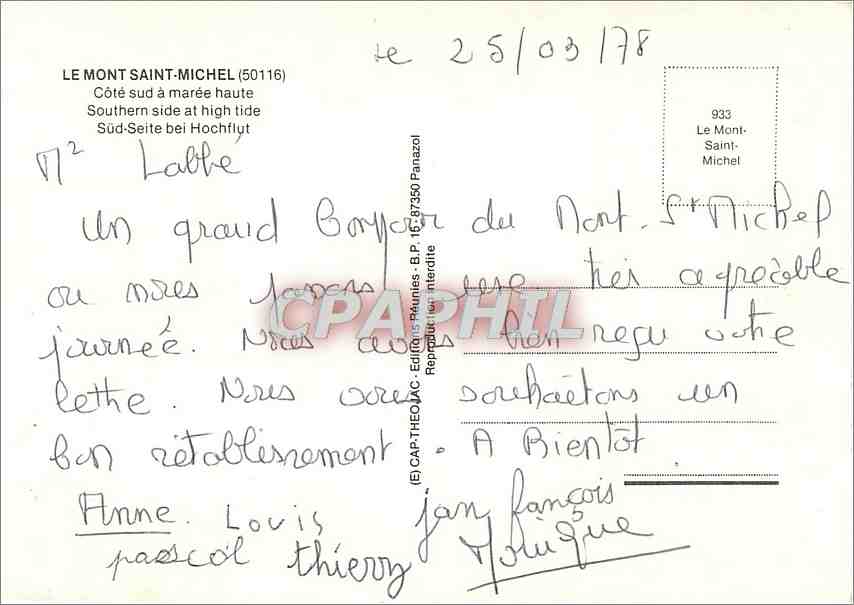 le 25/03/78
LE MONT SAINT-MICHEL (50116)
Côté sud à marée haute
Southern side at high tide
Süd-Seite bei Hochflut
933
Le Mont-
Saint-
Michel
(E) CAP-THEOJAC - Editions Réunies - B.P. 15 - 87350 Panazol
Reproduction interdite
Labbé
Un grand Bonjour du Mont-St Michel
ou nous une très agréable
journée. Nous avons bien reçu votre
lettre. Nous vous souhaêtons un
bon rétablissement. A Bientôt
Anne. Louis jan françois
pascal thierry Monique
CPAPHIL